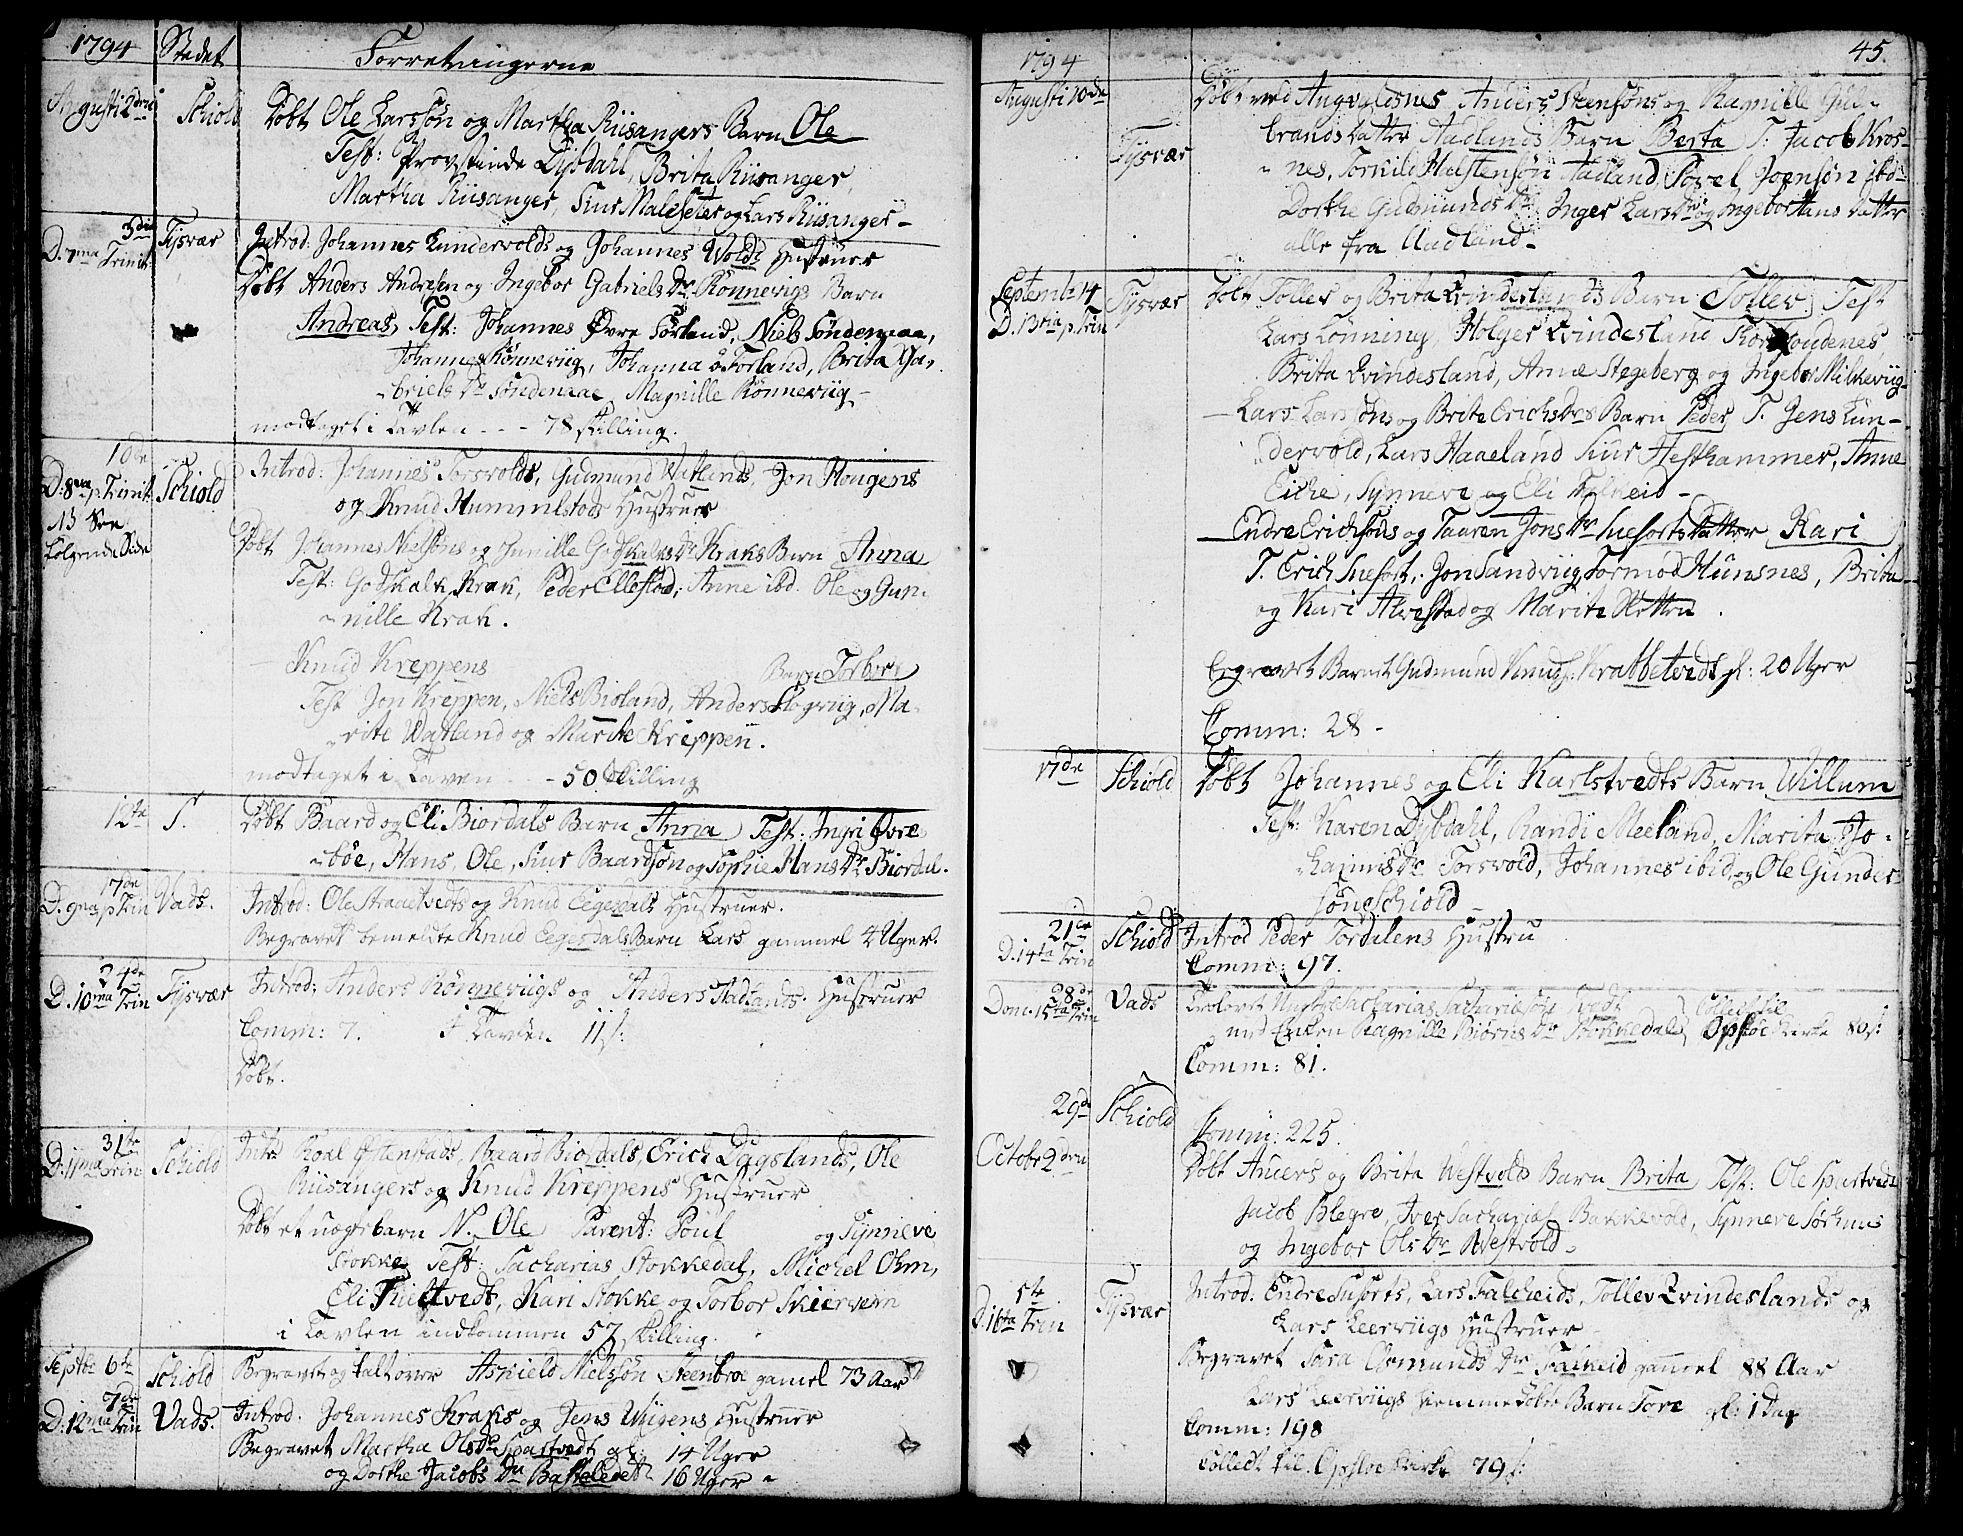 1794 Stedet Forretningerne
Augusti 2den Schiold Døbt Ole Larssøn og Martha Riisangers Barn Ole
Test: Provstinde Dybdahl, Brita Riisanger,
Martha Riisanger, Siur Malesetter og Lars Riisanger
3die D. 7ma Trinit. Tysvær Introd. Johannes Lundervolds og Johannes Wolds Hustruer
Døbt Anders Andresen og Ingebor Gabriels Dr Rønnevigs Barn
Andreas, Test: Johannes Øvre Førland, Niels Søndenaae,
Johannes Rønneviig, Johanna Førland, Brita Ga-
briels Dr Søndenaae, Magnille Rønneviig
modtaget i Tavlen - - - 78 skilling.
10de D. 8va p. Trinit. Schiold Introd: Johannes Torsvolds, Gudmund Vatlands, Jon Hougens
og Knud Hummelstads Hustruer
NB See følgende Side
Døbt Johannes Nielsøns og Gunille Godskalks Dr Kraks Barn Anna
Test: Godskalk Krak, Peder Ellestad, Anne ibd. Ole og Gun-
nille Krak.
Knud Kreppens Barn Torbor
Test Jon Kreppen, Niels Bioland, Anders Slogviig, Ma-
rite Watland og Marite Kreppen.
modtaget i Tavlen - - 50 Skilling
12te S. Døbt Baard og Eli Biordals Barn Anna Test: Ingri Øvre-
bøe, Hans, Ole, Siur Baardsøn og Sophie Hans Dr Biordal.
17de D. 9na p Trin Vads. Introd: Ole Straaetvedts og Knud Eegesdals Hustruer.
Begravet bemeldte Knud Eegesdals Barn Lars gammel 4 Uger.
24de D. 10ma Trin Tysvær Introd: Anders Rønneviigs og Anders Aadlands Hustruer
Comm: 7. I Tavlen 11 s:
Døbt.
31te D. 11ma Trin Schiold Intr Roal Østenstads, Baard Biordals, Erich Dagslands, Ole
Riisangers og Knud Kreppens Hustruer
Døbt et uægte barn N. Ole Parent: Poul og Synneve
Stokke Test: Sacharias Stokkedal, Michel Ohm,
Eli Tvedt, Kari Stokke og Torbor Skierveim
i Tavlen indkommen 57 skilling.
Septbr 6te Schiold Begravet og talt over Asfield Nielsøn Steenbroe gamel 73 Aar
7de D. 12ma Trin Vads. Introd. Johannes Kraks og Jens Wiigens Hustruer
Begravet Martha Ols Dr Svartvedt gl: 14 Uger
og Dorthe Jacobs Dr Bastelidet 16 Uger
1794 45.
Augusti 10de Døbt ved Augvaldsnes Anders Steensøns og Ragnille Gud-
Tysvær brands Datter Aadlands Barn Berta T: Jacob Kros-
nes, Torkild Halstensøn Aadland, Povel Joensøn ibd
Dorthe Gudmunds Dr, Inger Lars Dr og Ingebor Hans Datter
alle fra Aadland
Septemb 14 D. 13tia p. Trin Tysvær Døbt Tollev og Brita Qvindeslands Barn Tollev, Test
Lars Lønning, Holger Qvindesland
Brita Qvindesland, Anne Stegeberg og Ingebor Milkeviig
Lars Larsøns og Brite Erichs Drs Barn Peder T. Jens Lun-
dervold, Lars Haaeland Siur Hesthammer, Anne
Eiche, Synneve og Eli Falcheid
Endre Erichsøns og Taaren Jons Dr Susorts Datter Kari
T. Erich Susort, Jon Sandviig Tormod Hunsnes, Brita
og Kari Alvestad og Marite Sletten.
Begravet Barnet Gudmund Knuds: Krabbetvedt gl: 20 Uger
Comm: 28
17de Schiold Døbt Johannes og Eli Karlstvedts Barn Willum
Test: Karen Dybdahl, Randi Meeland, Marita Jo-
hannis Dr Torsvold, Johannes ibid. og Ole Gunder-
søn Schiold
21de D. 14ta Trin Schiold Introd Peder Tordalens Hustru
Comm: 97.
28de Dom. 15ta Trin Vads Trolovet Sacharias Sachariasøn Tvedt
med Enken Ragnille Biørns Dr Stokkedal, Collect til Opsloe Kirke 80 s:
Comm: 81.
29de Schiold Comm: 225.
Octobr 2den Døbt Anders og Brita Westvolds Barn Brita Test: Ole Svartvedt
Jacob Blegre, Iver Sacharias: Bakkevold, Synneve Sørhuus
og Ingebor Ols Dr Westvold
5te D. 16ta Trin Tysvær Introd: Endre Susorts, Lars Falcheids, Tollev Qvindeslands og
Lars Leerviigs Hustruer
Begravet Sara Osmunds Dr Falkeid gammel 88 Aar
Lars Leerviigs hiemmedøbte Barn Tore gl: 1 Dag
Comm: 198
Collect til Opsloe Kirke 79 s: